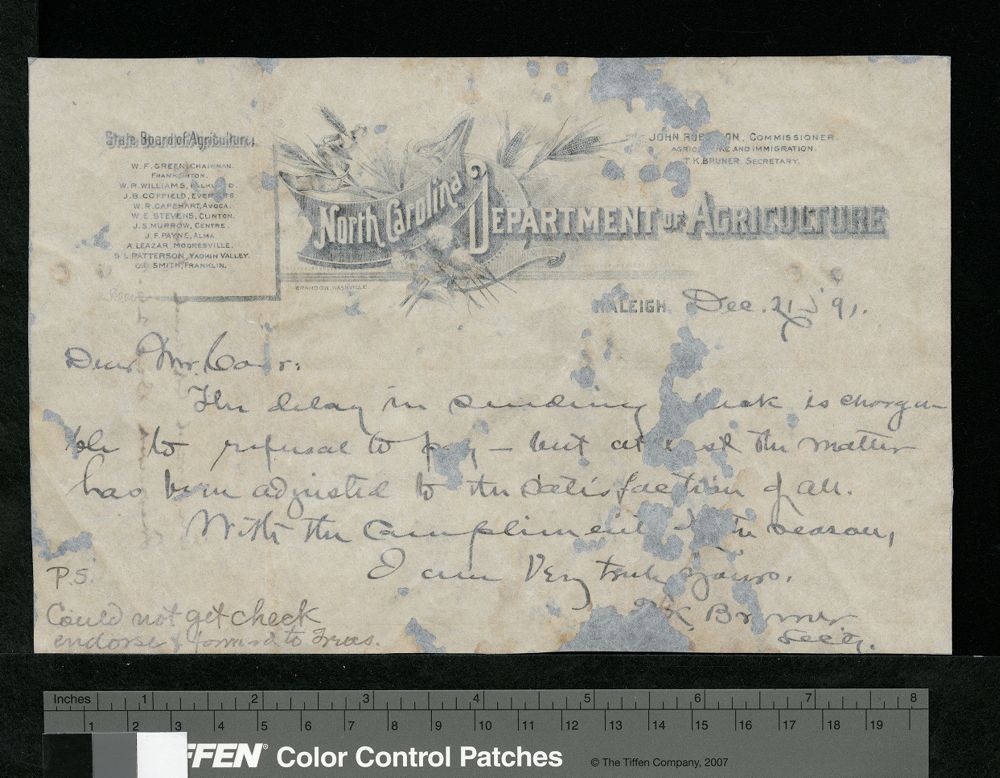 State Board of Agriculture,
W. F. GREEN, CHAIRMAN.
FRANKLINTON.
W. R. WILLIAMS, FALKLAND.
J. B. COFFIELD, EVERETTS.
W. R. CAPEHART, AVOCA.
W. E. STEVENS, CLINTON.
J. S. MURROW, CENTRE.
J. F. PAYNE, ALMA.
A. LEAZAR, MOORESVILLE.
S. L. PATTERSON, YADKIN VALLEY.
C. D. SMITH, FRANKLIN.
JOHN ROBINSON, COMMISSIONER.
AGRICULTURE AND IMMIGRATION.
T. K. BRUNER SECRETARY.
North Carolina DEPARTMENT OF AGRICULTURE
BRANDON, NASHVILLE
RALEIGH, Dec. 21 '91.
Dear Mr. Carr:
The delay in sending check is chargea-
ble to refusal to pay — but at last the matter
has been adjusted to the satisfaction of all.
With the compliments of the season,
I am Very truly yours,
T. K. Bruner
Sec'y.
P.S.
Could not get check
endorse & forward to Treas.
Inches 1 2 3 4 5 6 7 8
1 2 3 4 5 6 7 8 9 10 11 12 13 14 15 16 17 18 19
FFEN® Color Control Patches © The Tiffen Company, 2007